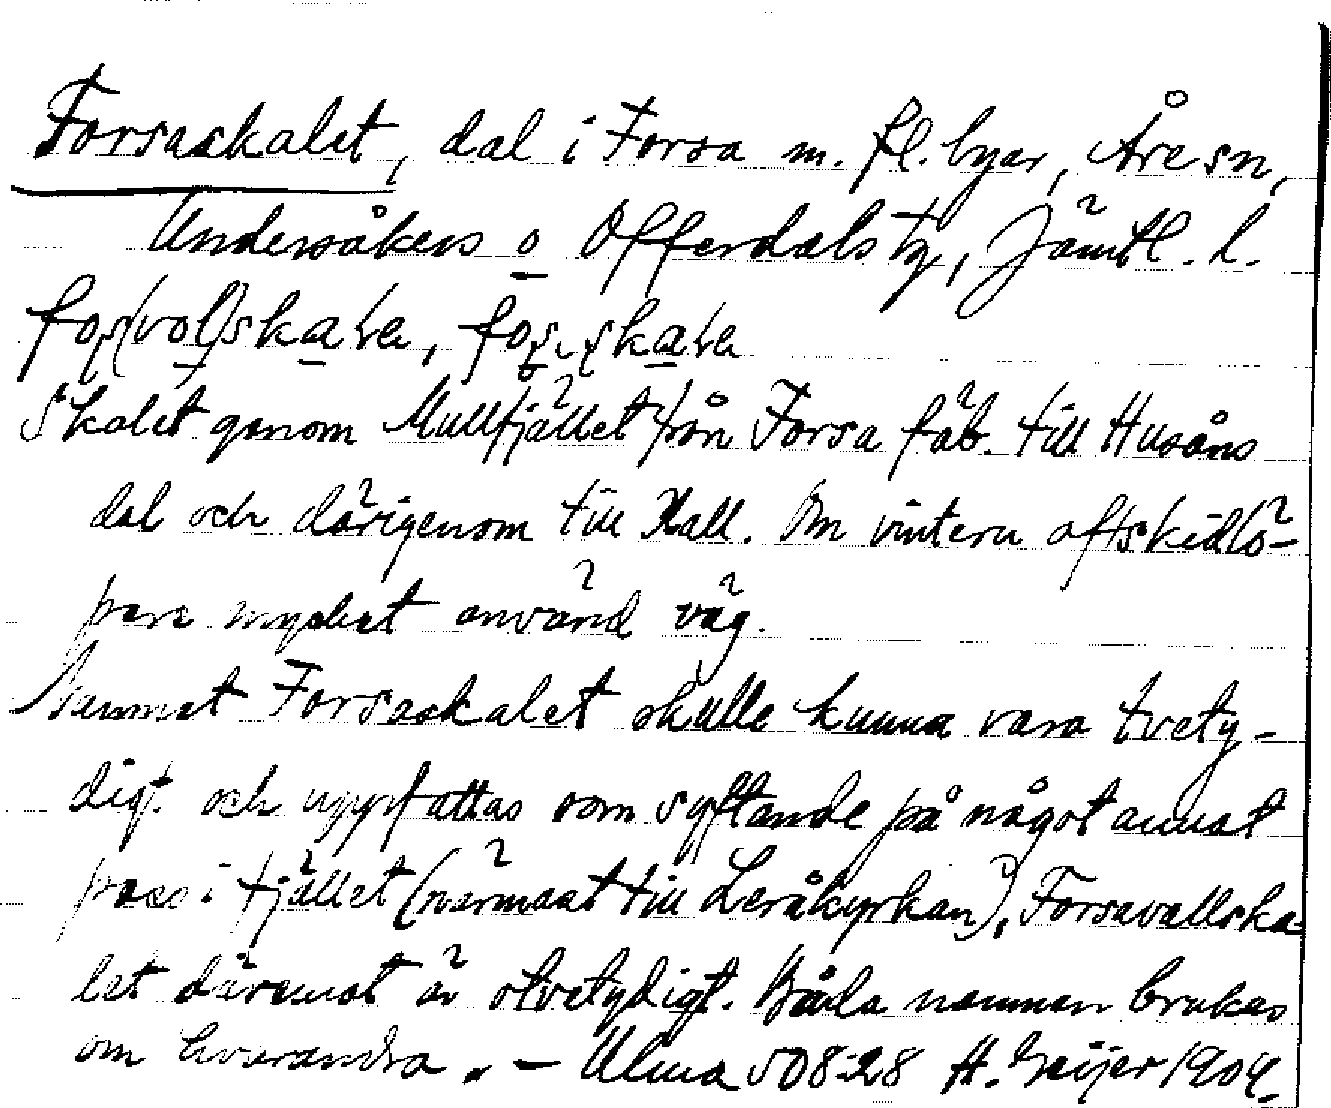 Forsaskalet, dal i Forsa m. fl. byar, Åre sn,
Undersåkers o Offerdals tg, Jämtl. l.
Skalet genom Mullfjället från Forsa fäb. till Husåns
dal och därigenom till Kall. Om vintern af skidlö-
pare mycket använd väg.
Namnet Forsaskalet skulle kunna vara tvety-
digt och uppfattas som syftande på något annat
pass i fjället (närmast till Leråkyrkan), Forsavallska-
let däremot är otvetydigt. Båda namnen brukas
om hvarandra. – Ulma 508:28 H. Geijer 1904.